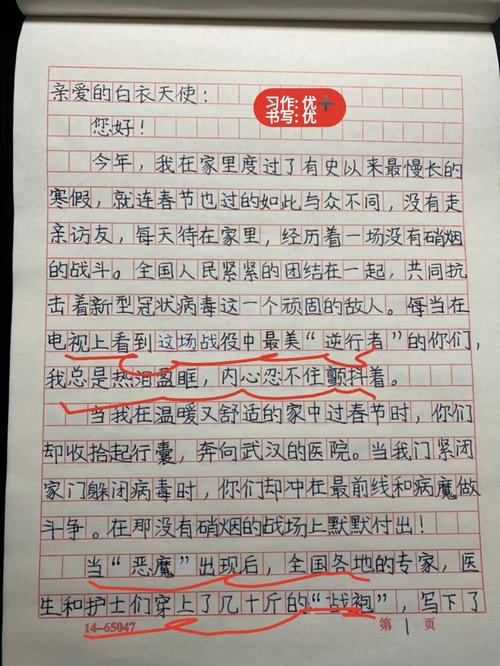 亲爱的白衣天使：
习作：优+
书写：优
您好！
今年，我在家里度过了有史以来最慢长的
寒假，就连春节也过的如此与众不同，没有走
亲访友，每天待在家里，经历着一场没有硝烟
的战斗。全国人民紧紧的团结在一起，共同抗
击着新型冠状病毒这一个顽固的敌人。每当在
电视上看到这场战役中最美“逆行者”的你们，
我总是热泪盈眶，内心忍不住颤抖着。
当我在温暖又舒适的家中过春节时，你们
却收拾起行囊，奔向武汉的医院。当我门紧闭
家门躲闭病毒时，你们却冲在最前线和病魔做
斗争。在那没有硝烟的战场上默默付出！
当“恶魔”出现后，全国各地的专家，医
生和护士们穿上了几十斤的“战袍”，写下了
14-65047 第 1 页